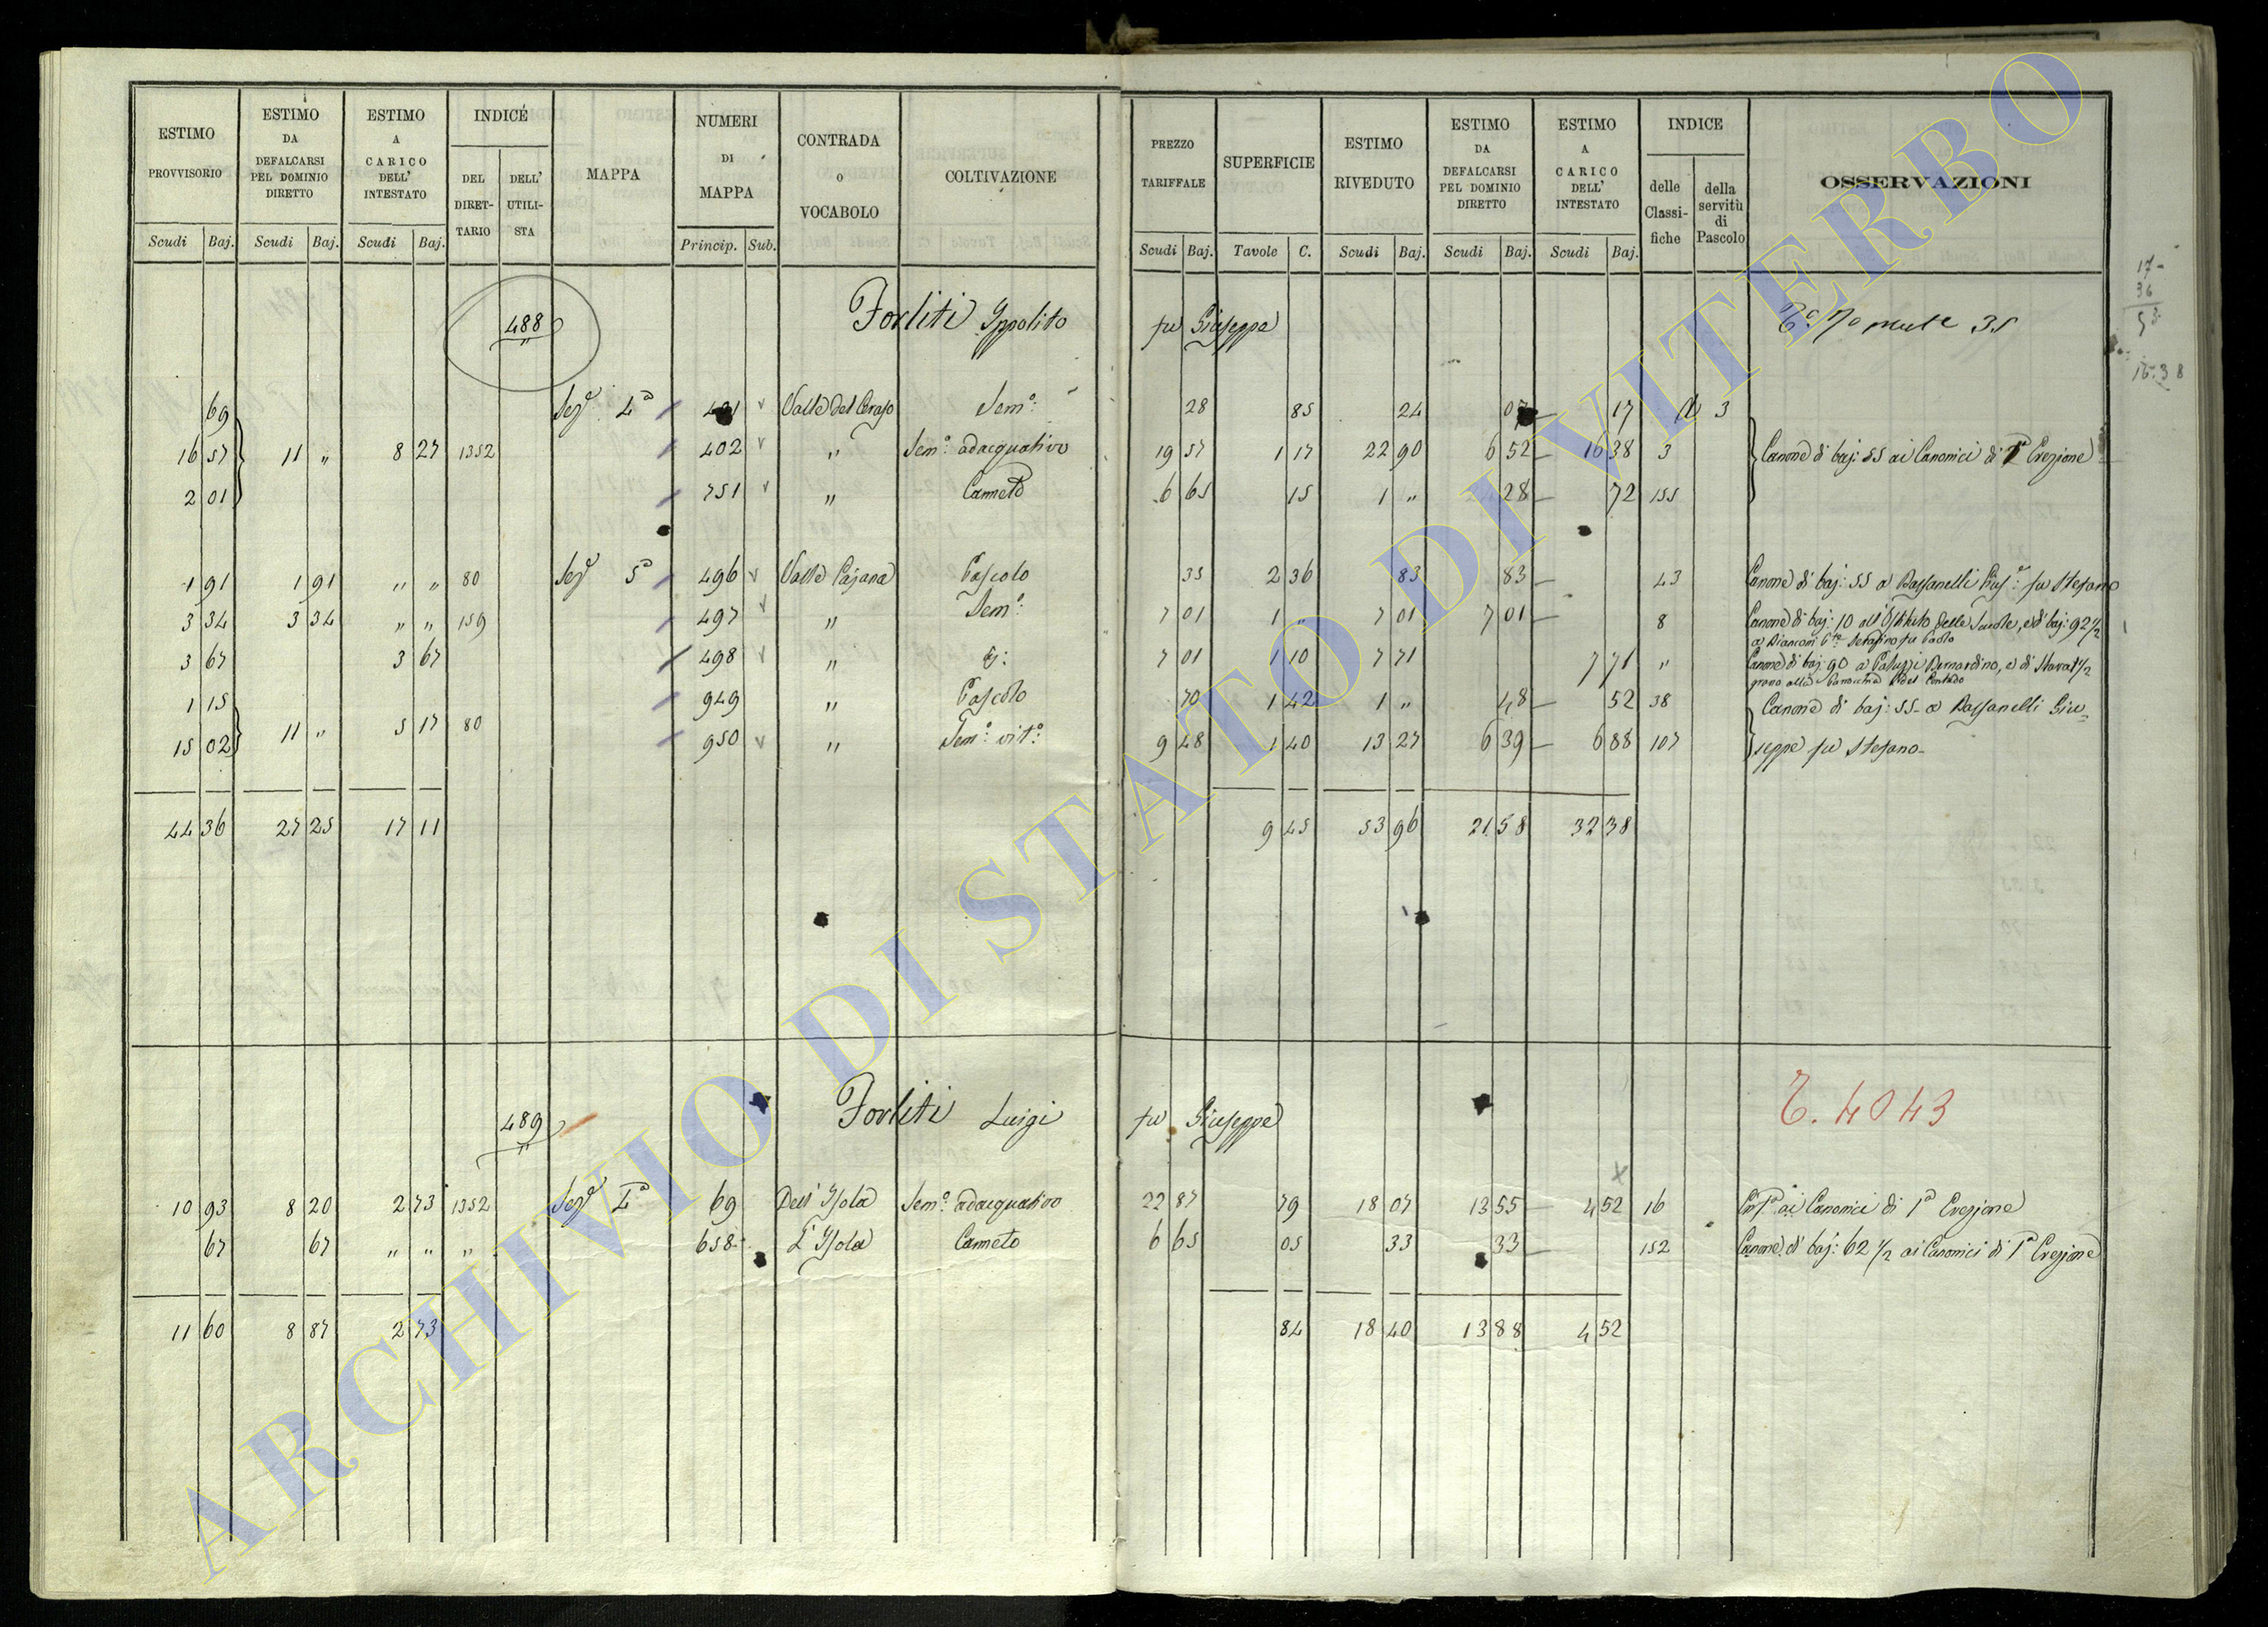 ESTIMO PROVVISORIO | ESTIMO DA DEFALCARSI PEL DOMINIO DIRETTO | ESTIMO A CARICO DELL' INTESTATO | INDICE | MAPPA | NUMERI DI MAPPA | CONTRADA O VOCABOLO | COLTIVAZIONE | PREZZO TARIFFALE | SUPERFICIE | ESTIMO RIVEDUTO | ESTIMO DA DEFALCARSI PEL DOMINIO DIRETTO | ESTIMO A CARICO DELL' INTESTATO | INDICE | OSSERVAZIONI
DEL DIRET-TARIO | DELL' UTILI-STA | delle Classi-fiche | della servitù di Pascolo
Scudi Baj. | Scudi Baj. | Scudi Baj. | Princip. Sub. | Scudi Baj. | Tavole C. | Scudi Baj. | Scudi Baj. | Scudi Baj.
17
36
53
16.38
488 Forliti Ippolito fu Giuseppe 35
69 Sez.e 4a Valle del Ceraso Sem.o 28 85 24 07 17 3
16 57 11 " 8 27 1352 402 " Sem.o adacquativo 19 57 1 17 22 90 6 52 16 38 3 Canone di baj: 55 ai Canonici di 1a Erezione
2 01 751 " Canneto 6 65 15 1 " 28 72 155
1 91 1 91 " " 80 Sez.e 5a 496 Valle Cajana Pascolo 35 2 36 83 83 43 Canone di baj: 55 a Bassanelli Gius.e fu Stefano
3 34 3 34 " " 159 497 " Sem.o 7 01 1 " 7 01 7 01 8 Canone di baj: 10 all' Istituto delle Scuole, e di baj: 92 1/2
a Serafino fu Paolo
3 67 3 67 498 " 7 01 1 10 7 71 7 71 " Canone di baj: 90 a Bernardino, e di 1/2
grano alla
1 15 949 " Pascolo 70 1 42 1 " 48 52 38 Canone di baj: 55 a Bassanelli Giu-
15 02 11 " 5 17 80 950 " Sem.o vit.o 9 48 1 40 13 27 6 39 6 88 107 seppe fu Stefano
44 36 27 25 17 11 9 45 53 96 21 58 32 38
489 Forliti Luigi fu Giuseppe 4043
10 93 8 20 2 73 1352 Sez.e 4a 69 Dell' Isola Sem.o adacquativo 22 87 79 18 07 13 55 4 52 16 ai Canonici di 1a Erezione
67 67 " " " 658 L' Isola Canneto 6 65 05 33 33 152 Canone di baj: 62 1/2 ai Canonici di 1a Erezione
11 60 8 87 2 73 84 18 40 13 88 4 52
ARCHIVIO DI STATO DI VITERBO